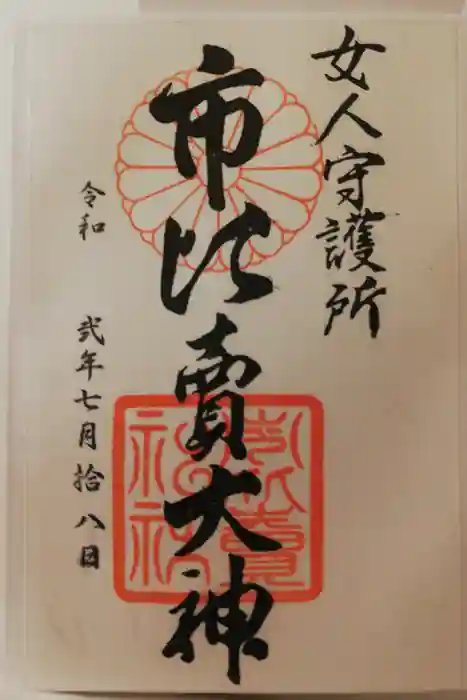 女人守護所
市比賣大神
令和 弐年七月拾八日